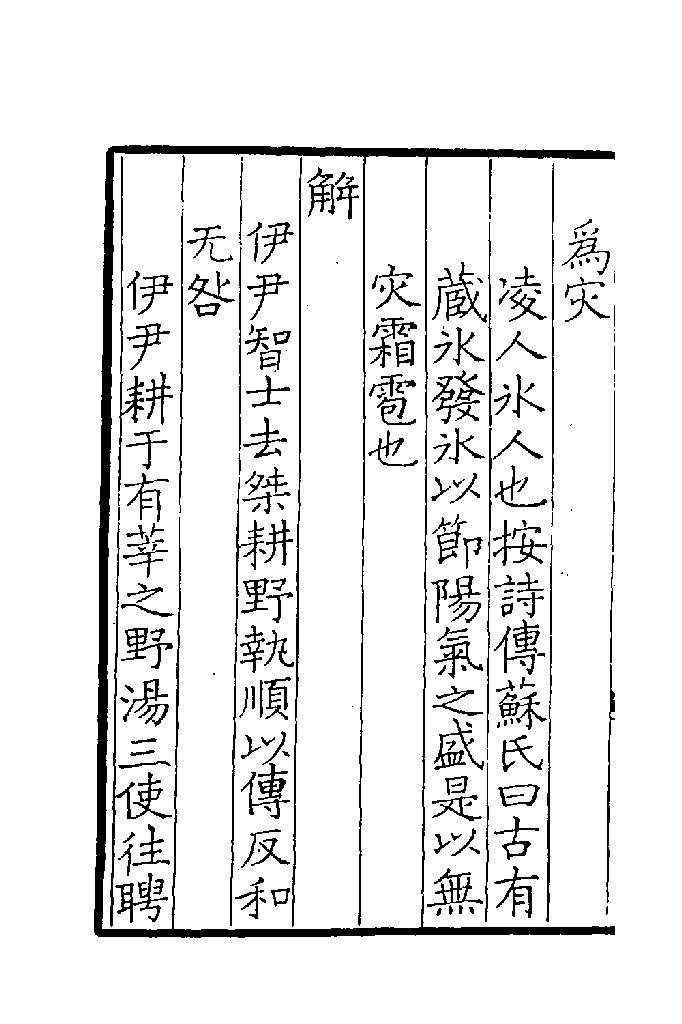 為灾
凌人氷人也按詩傳蘇氏曰古有
蔵氷發氷以節陽氣之盛是以無
灾霜雹也
解
伊尹智士去桀耕野執順以傳反和
无咎
伊尹耕于有莘之野湯三使往聘